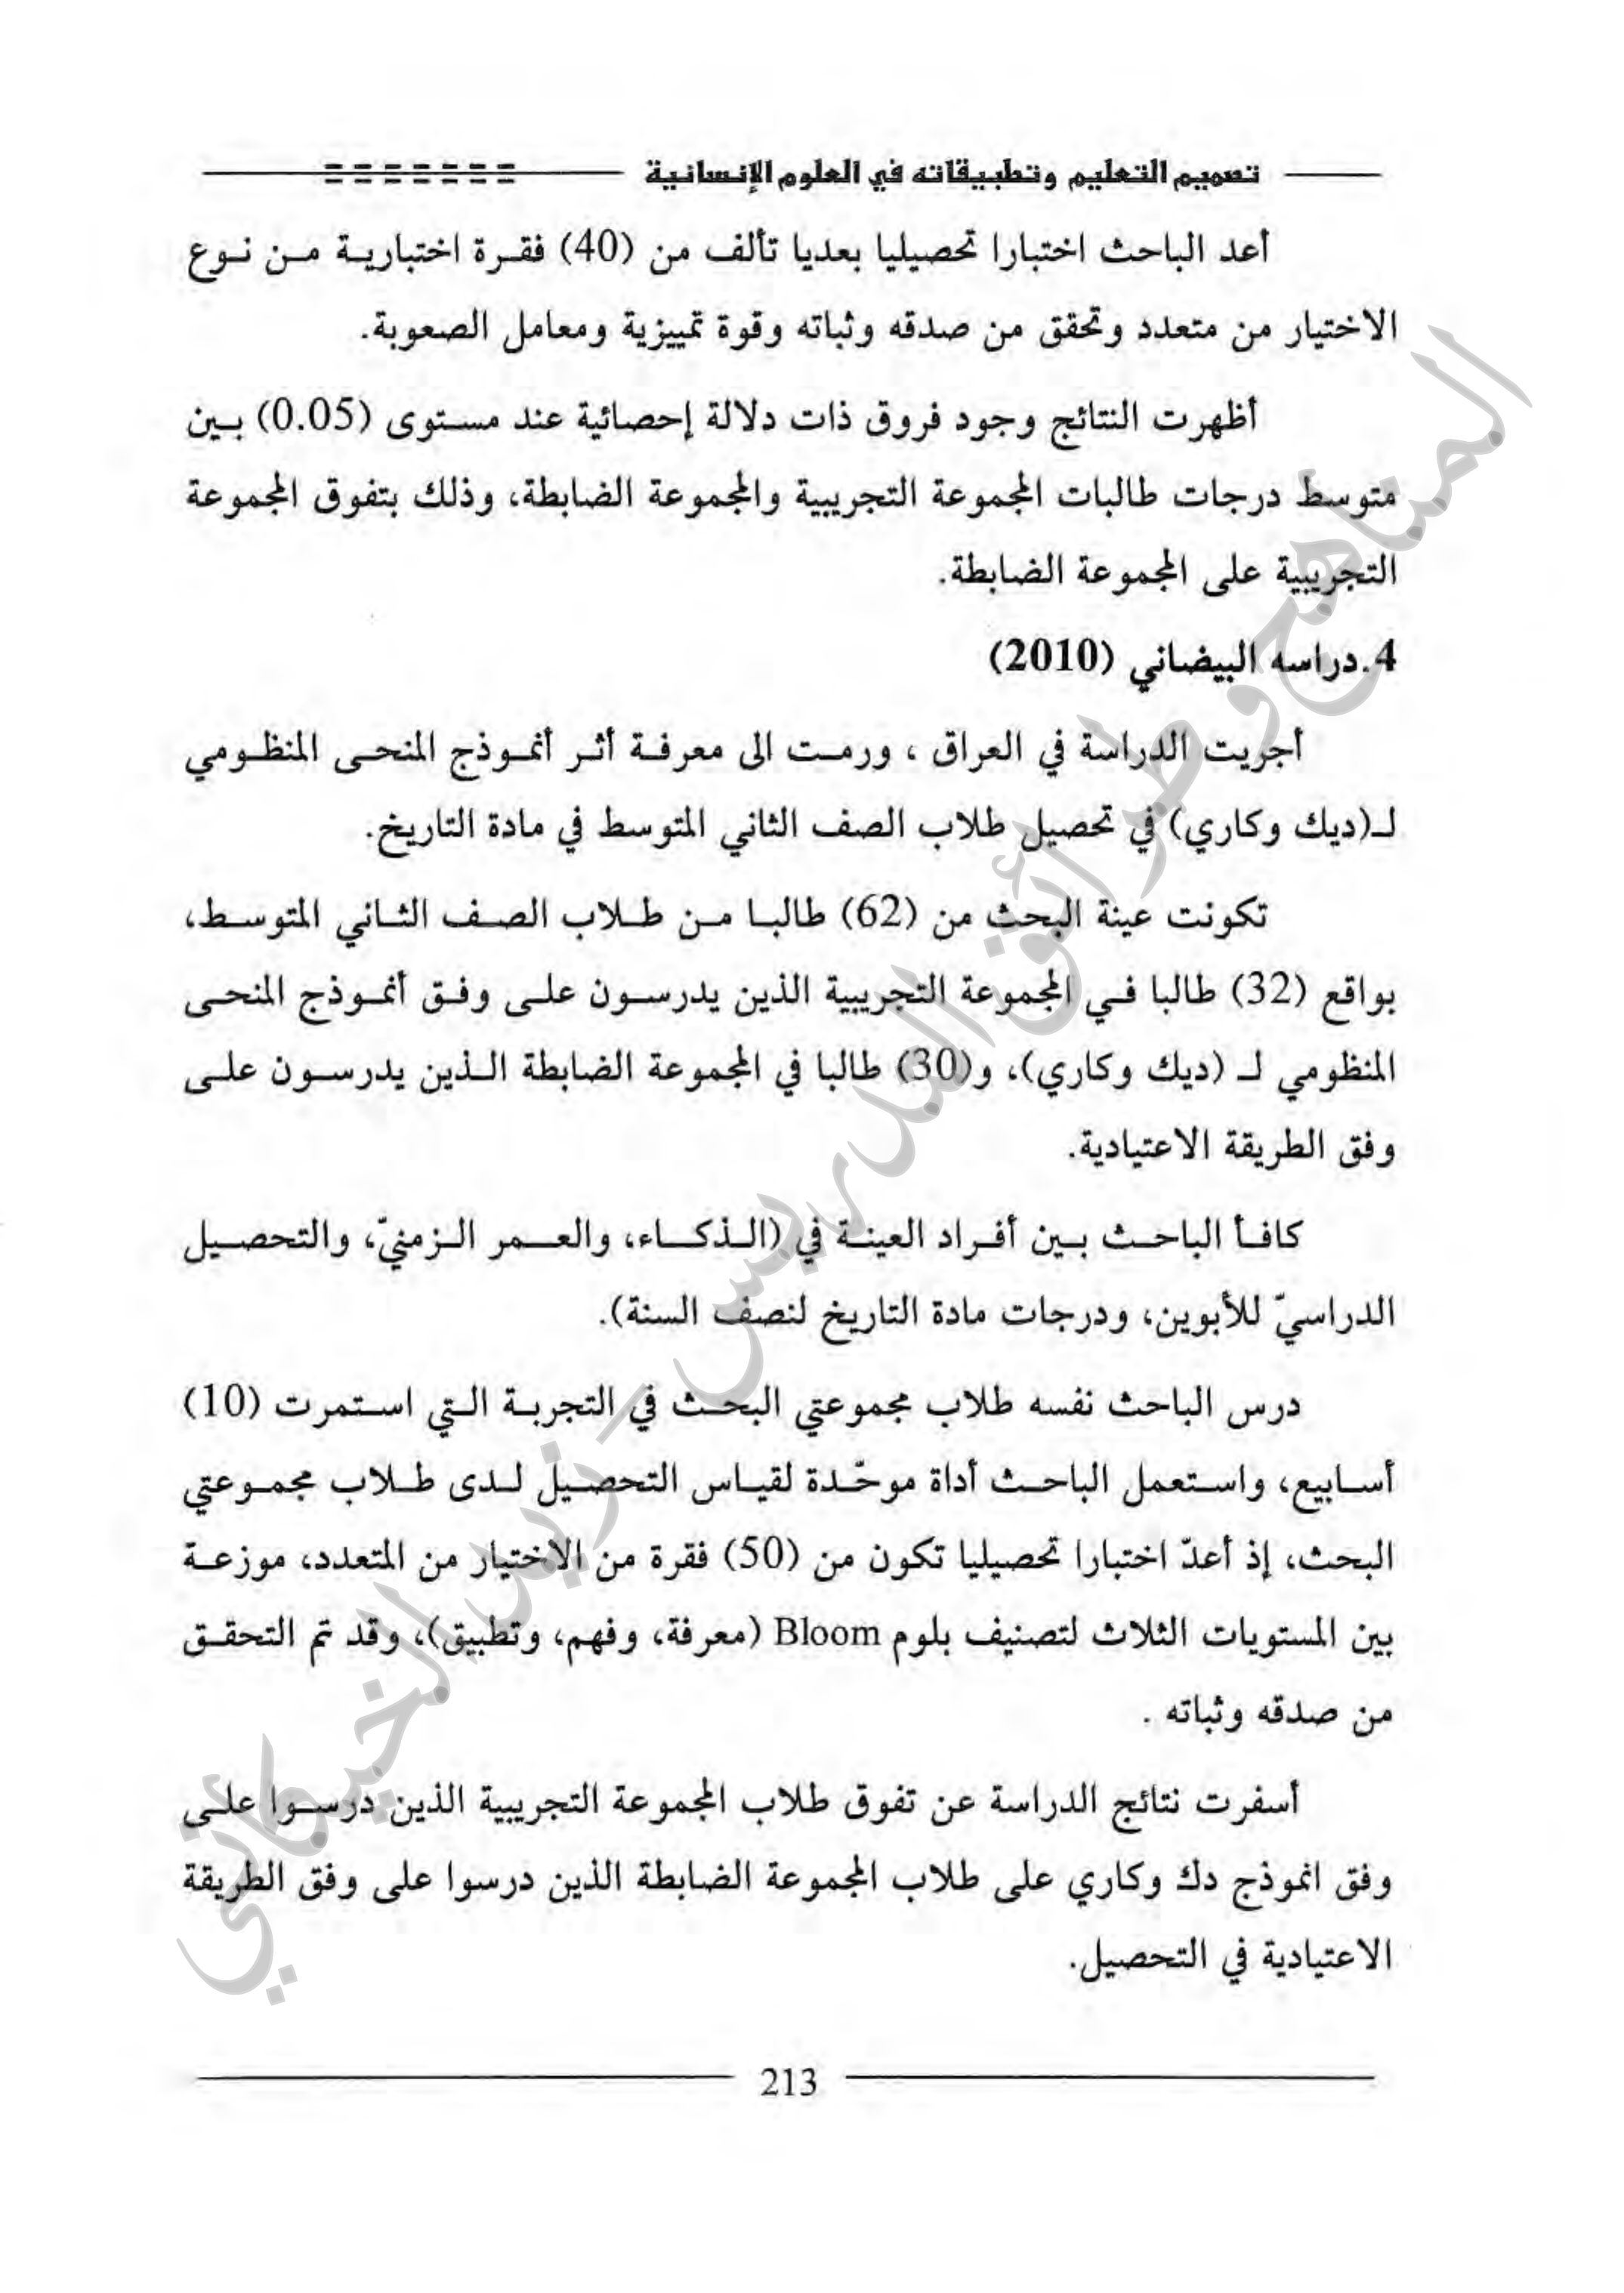 تصميم التعليم وتطبيقاته في العلوم الإنسانية
أعد الباحث اختبارا تحصيليا بعديا تألف من (40) فقرة اختبارية من نوع
الاختيار من متعدد وتحقق من صدقه وثباته وقوة تمييزية ومعامل الصعوبة.
أظهرت النتائج وجود فروق ذات دلالة إحصائية عند مستوى (0.05) بين
متوسط درجات طالبات المجموعة التجريبية والمجموعة الضابطة، وذلك بتفوق المجموعة
التجريبية على المجموعة الضابطة.
4.دراسه البيضاني (2010)
أجريت الدراسة في العراق ، ورمت الى معرفة أثر أنموذج المنحى المنظومي
لـ(ديك وكاري) في تحصيل طلاب الصف الثاني المتوسط في مادة التاريخ.
تكونت عينة البحث من (62) طالبا من طلاب الصف الثاني المتوسط،
بواقع (32) طالبا في المجموعة التجريبية الذين يدرسون على وفق أنموذج المنحى
المنظومي لـ (ديك وكاري)، و(30) طالبا في المجموعة الضابطة الذين يدرسون على
وفق الطريقة الاعتيادية.
كافأ الباحث بين أفراد العينة في (الذكاء، والعمر الزمنيّ، والتحصيل
الدراسيّ للأبوين، ودرجات مادة التاريخ لنصف السنة).
درس الباحث نفسه طلاب مجموعتي البحث في التجربة التي استمرت (10)
أسابيع، واستعمل الباحث أداة موحّدة لقياس التحصيل لدى طلاب مجموعتي
البحث، إذ أعدّ اختبارا تحصيليا تكون من (50) فقرة من الاختيار من المتعدد، موزعة
بين المستويات الثلاث لتصنيف بلوم Bloom (معرفة، وفهم، وتطبيق)، وقد تم التحقق
من صدقه وثباته .
أسفرت نتائج الدراسة عن تفوق طلاب المجموعة التجريبية الذين درسوا على
وفق انموذج دك وكاري على طلاب المجموعة الضابطة الذين درسوا على وفق الطريقة
الاعتيادية في التحصيل.
213
المناهج وطرائق التدريس - زيد الخيكاني